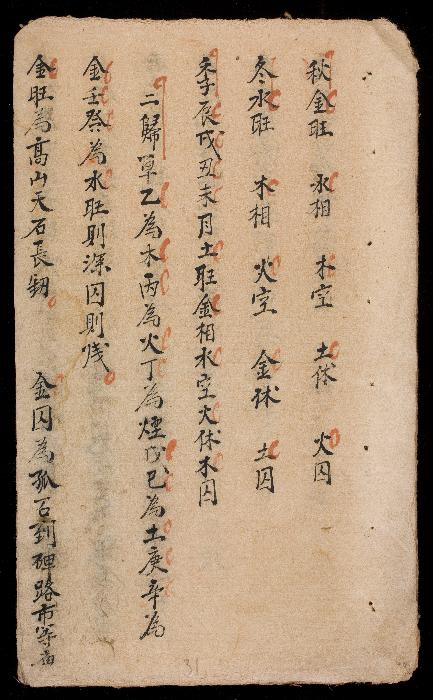 秋金旺 水相 木空 土休 火囚
冬水旺 木相 火空 金休 土囚
季辰戌丑未月土旺金相水空火休木囚
二歸單乙為木丙為火丁為煙戊己為土庚辛為
金壬癸為水旺則深囚則浅
金旺為高山大石長劍 金囚為孤石到碑路市等
31